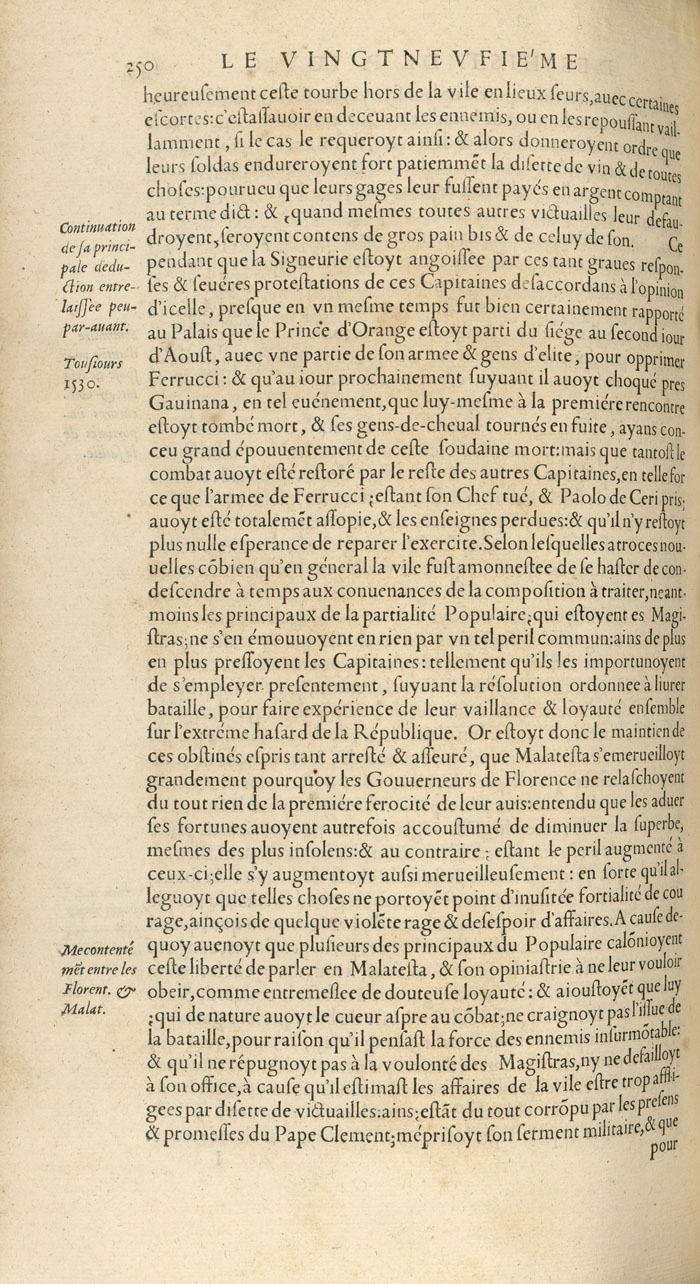 250 LE VINGTNEVFIE'ME
heureuſement ceſte tourbe hors de la vile en lieux ſeurs, auec certaines
eſcortes: c'eſtaſſauoir en deceuant les ennemis, ou en les repouſſant vail-
lamment, ſi le cas le requeroyt ainſi: & alors donneroyent ordre que
leurs ſoldas endureroyent fort patiemmēt la diſerte de vin & de toutes
choſes: pourueu que leurs gages leur fuſſent payés en argent comptant
au terme dict: & ¿quand meſmes toutes autres victuailles leur defau-
droyent, ſeroyent contens de gros pain bis & de celuy de ſon. Ce
pendant que la Signeurie eſtoyt angoiſſee par ces tant graues reſpon-
ſes & ſeuéres proteſtations de ces Capitaines deſaccordans à l'opinion
d'icelle, preſque en vn meſme temps fut bien certainement rapporté
au Palais que le Prince d'Orange eſtoyt parti du ſiége au ſecond iour
d'Aouſt, auec vne partie de ſon armee & gens d'elite, pour opprimer
Ferrucci: & qu'au iour prochainement ſuyuant il auoyt choqué pres
Gauinana, en tel euénement, que luy-meſme à la premiére rencontre
eſtoyt tombé mort, & ſes gens-de-cheual tournés en fuite, ayans con-
ceu grand épouuentement de ceſte ſoudaine mort: mais que tantoſt le
combat auoyt eſté reſtoré par le reſte des autres Capitaines, en telle ſor
ce que l'armee de Ferrucci ¿eſtant ſon Chef tué, & Paolo de Ceri pris;
auoyt eſté totalemēt aſſopie, & les enſeignes perdues: & qu'il n'y reſtoyt
plus nulle eſperance de reparer l'exercite. Selon leſquelles atroces nou-
uelles cōbien qu'en géneral la vile fuſt amonneſtee de ſe haſter de con-
deſcendre à temps aux conuenances de la compoſition à traiter, neant-
moins les principaux de la partialité Populaire¿qui eſtoyent es Magi-
ſtras; ne s'en émouuoyent en rien par vn tel peril commun: ains de plus
en plus preſſoyent les Capitaines: tellement qu'ils les importunoyent
de s'empleyer preſentement, ſuyuant la réſolution ordonnee à liurer
bataille, pour faire expérience de leur vaillance & loyauté enſemble
ſur l'extréme haſard de la République. Or eſtoyt donc le maintien de
ces obſtinés eſpris tant arreſté & aſſeuré, que Malateſta s'emerueilloyt
grandement pourquoy les Gouuerneurs de Florence ne relaſchoyent
du tout rien de la premiére ferocité de leur auis: entendu que les aduer
ſes fortunes auoyent autrefois accouſtumé de diminuer la ſuperbe,
meſmes des plus inſolens: & au contraire ¿ eſtant le peril augmenté à
ceux-ci; elle s'y augmentoyt auſsi merueilleuſement: en ſorte qu'il al-
leguoyt que telles choſes ne portoyēt point d'inuſitée fortialité de cou
rage, ainçois de quelque violēte rage & deſeſpoir d'affaires. A cauſe de-
quoy auenoyt que pluſieurs des principaux du Populaire calōnioyent
ceſte liberté de parler en Malateſta, & ſon opiniaſtrie à ne leur vouloir
obeir, comme entremeſlee de douteuſe loyauté: & aiouſtoyēt que luy
¿qui de nature auoyt le cueur aſpre au cōbat; ne craignoyt pas l'iſſue de
la bataille, pour raiſon qu'il penſaſt la force des ennemis inſurmōtable:
& qu'il ne répugnoyt pas à la voulonté des Magiſtras, ny ne defailloyt
à ſon office, à cauſe qu'il eſtimaſt les affaires de la vile eſtre trop affli-
gees par diſerte de victuailles: ains¿eſtāt du tout corrōpu par les preſens
& promeſſes du Pape Clement; mépriſoyt ſon ſerment militaire, & que
pour
Continuation
de ſa princi-
pale dedu-
ction entre-
laiſſee peu-
par-auant.
Touſiours
1530.
Mecontenté
mēt entre les
Florent. &
Malat.